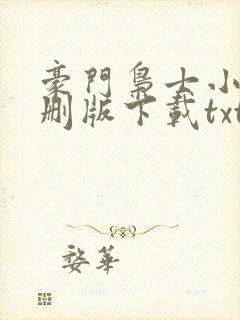 豪門梟士小
刪版下載txt
婺華